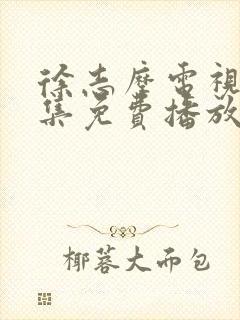 徐志摩電視
集免費播放
椰蓉大而包